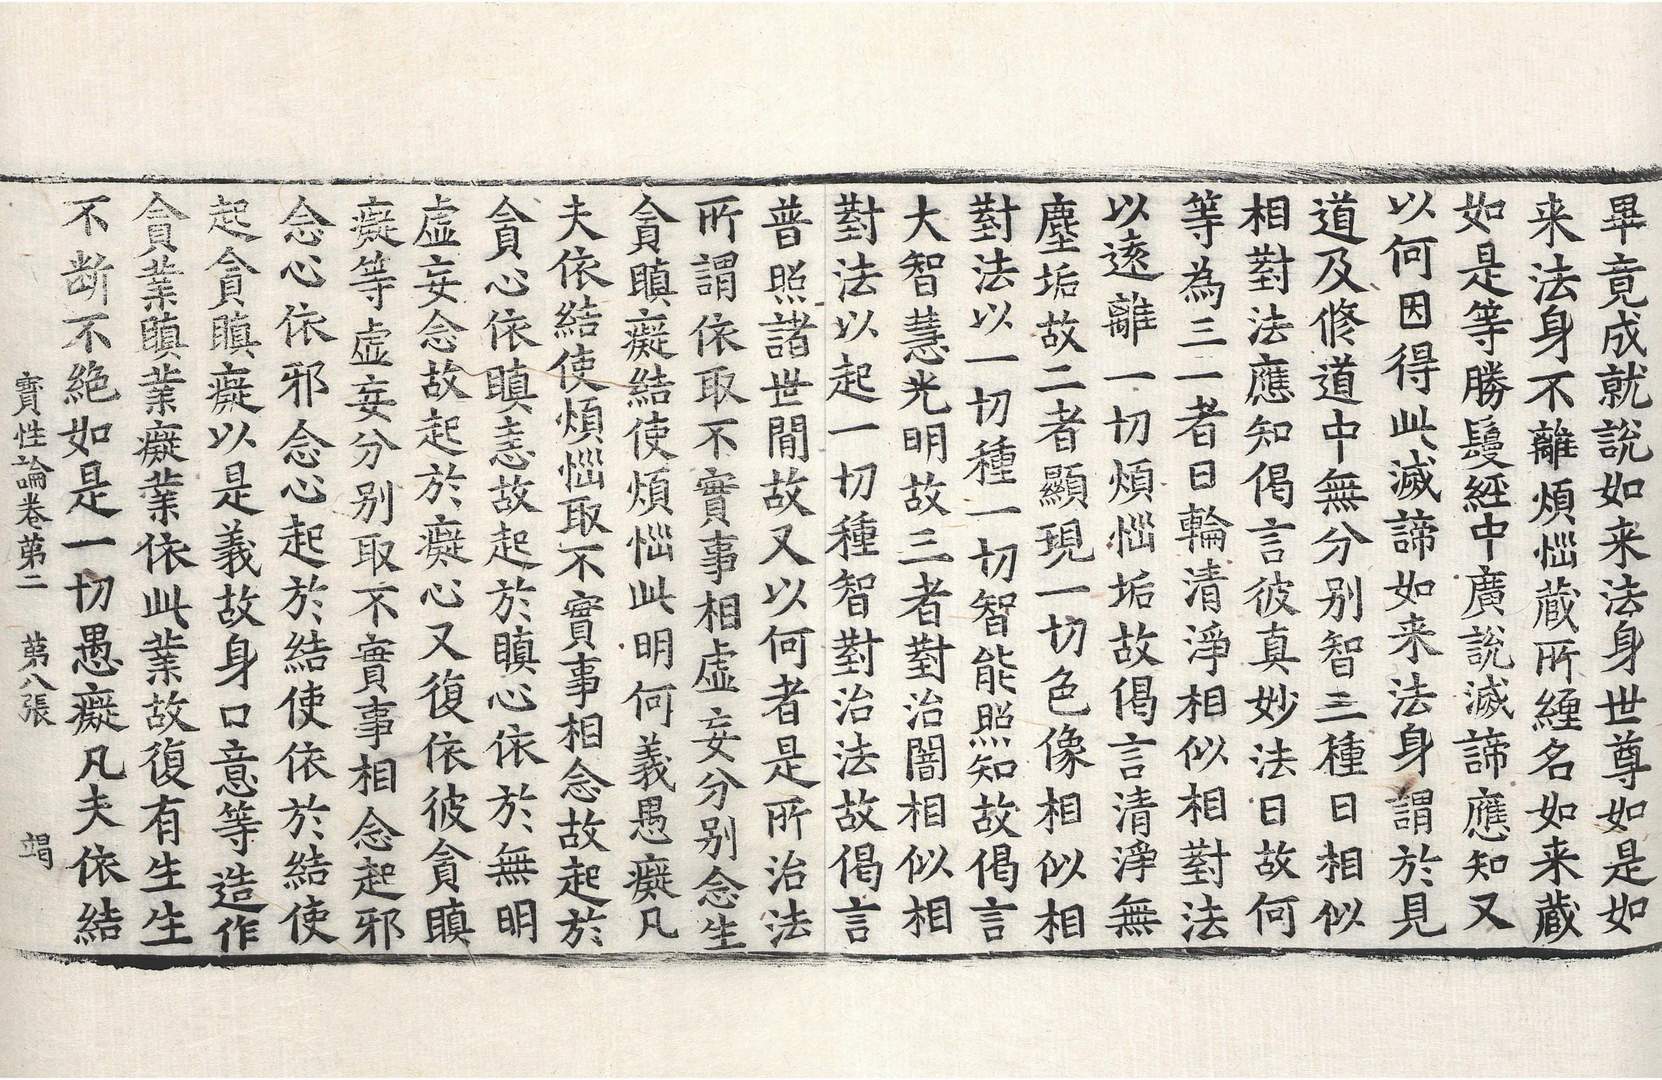 畢竟成就說如来法身世尊如是如
来法身不離煩惱藏所纏名如来藏
如是等勝鬘經中廣說滅諦應知又
以何因得此滅諦如来法身謂於見
道及修道中無分别智三種日相似
相對法應知偈言彼真妙法日故何
等為三一者日輪清淨相似相對法
以遠離一切煩惱垢故偈言清淨無
塵垢故二者顯現一切色像相似相
對法以一切種一切智能照知故偈言
大智慧光明故三者對治闇相似相
對法以起一切種智對治法故偈言
普照諸世間故又以何者是所治法
所謂依取不實事相虛妄分别念生
貪瞋癡結使煩惱此明何義愚癡凡
夫依結使煩惱取不實事相念故起於
貪心依瞋恚故起於瞋心依於無明
虛妄念故起於癡心又復依彼貪瞋
癡等虛妄分别取不實事相念起邪
念心依邪念心起於結使依於結使
起貪瞋癡以是義故身口意等造作
貪業瞋業癡業依此業故復有生生
不断不絶如是一切愚癡凡夫依結
寶性論卷第二　第八張　竭